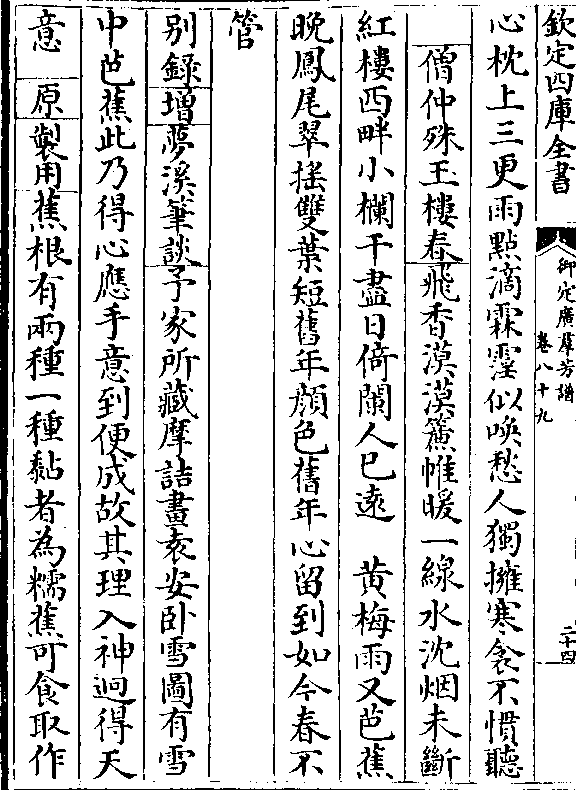 欽定四庫全書
御定廣羣芳譜
卷八十九
二十四
心枕上三更雨點滴霖霪似喚愁人獨擁寒衾不慣聽
僧仲殊玉樓春飛香漠漠簾帷暖一線水沈烟未斷
紅樓西畔小欄干盡日倚闌人已遠　黄梅雨又芭蕉
晚鳳尾翠揺雙葉短舊年顔色舊年心留到如今春不
管
别錄增夢溪筆談予家所藏摩詰畫袁安卧雪圖有雪
中芭蕉此乃得心應手意到便成故其理入神迥得天
意　原製用蕉根有兩種一種黏者為糯蕉可食取作